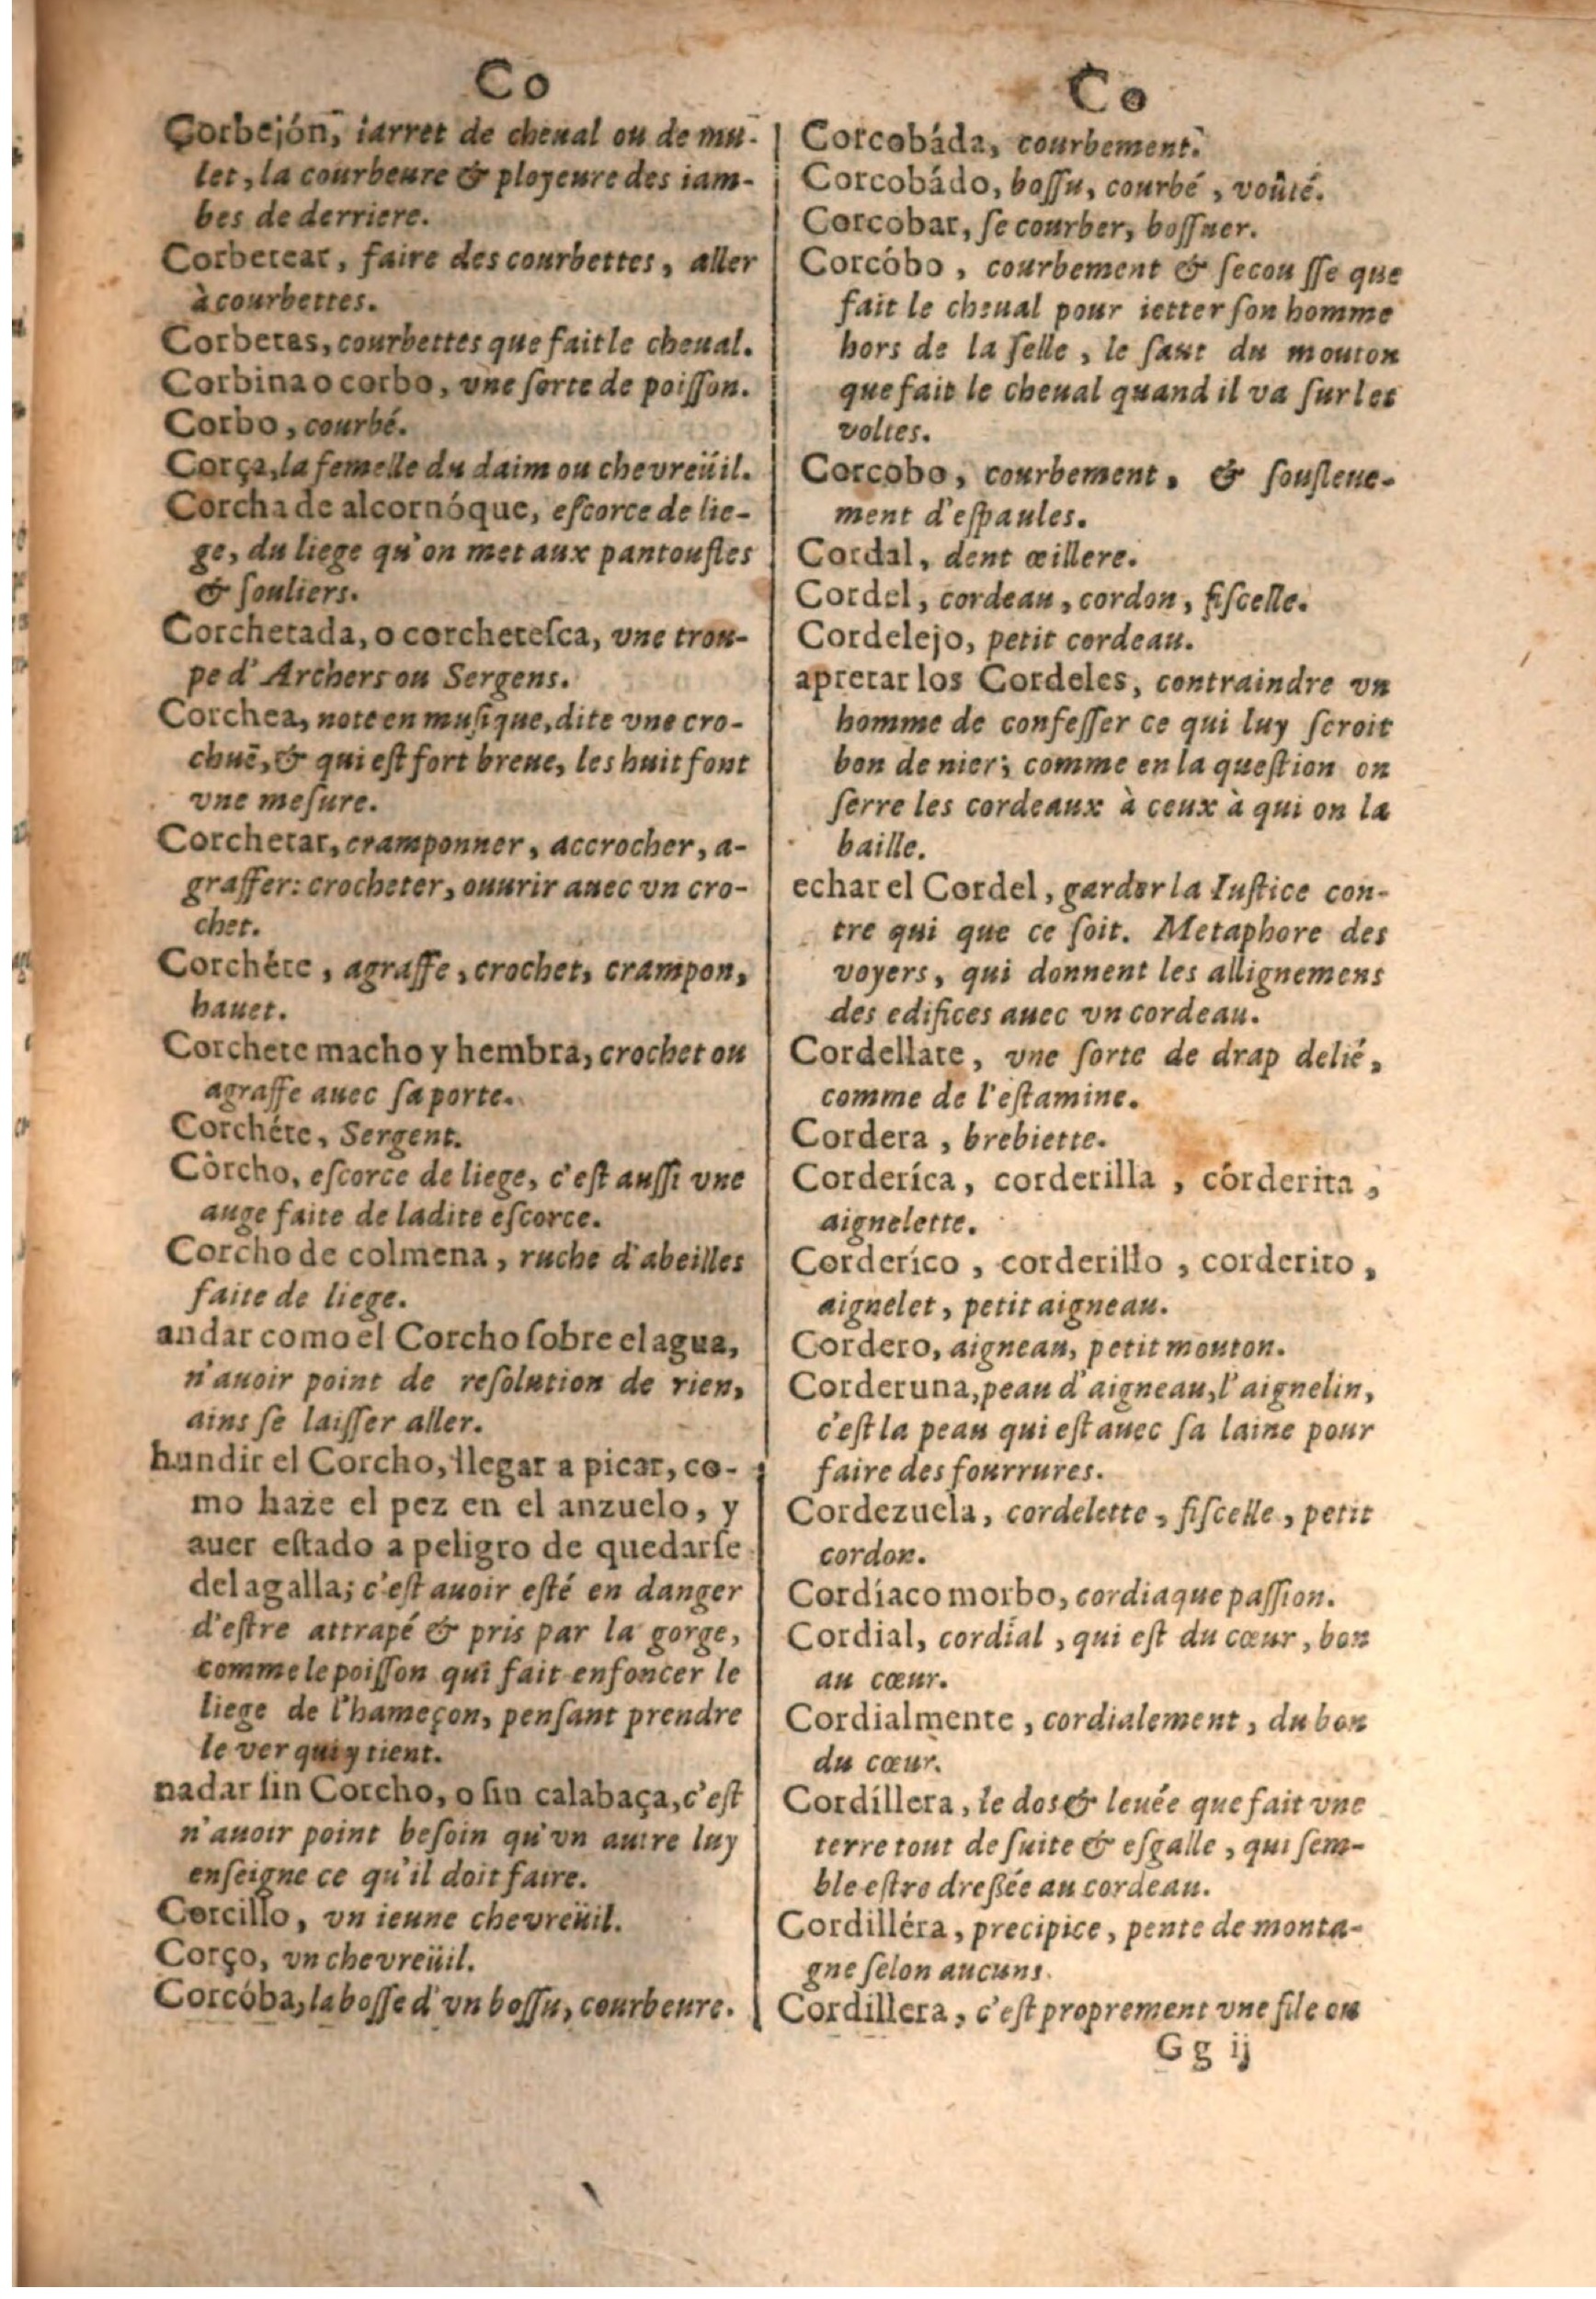 Co
Corbejón, iarret de cheual ou de mu-
let, la courbeure & ployeure des iam-
bes de derriere.
Corbetear, faire des courbettes, aller
à courbettes.
Corbetas, courbettes que fait le cheual.
Corbina o corbo, vne ſorte de poiſſon.
Corbo, courbé.
Corça, la femelle du daim ou chevreüil.
Corcha de alcornóque, eſcorce de lie-
ge, du liege qu'on met aux pantoufles
& ſouliers.
Corchetada, o corcheteſca, vne trou-
pe d'Archers ou Sergens.
Corchea, note en muſique, dite vne cro-
chuë, & qui eſt fort breue, les huit font
vne meſure.
Corchetar, cramponner, accrocher, a-
graffer: crocheter, ouurir auec vn cro-
chet.
Corchéte, agraffe, crochet, crampon,
hauet.
Corchete macho y hembra, crochet ou
agraffe auec ſa porte.
Corchéte, Sergent.
Còrcho, eſcorce de liege, c'eſt auſſi vne
auge faite de ladite eſcorce.
Corcho de colmena, ruche d'abeilles
faite de liege.
andar como el Corcho ſobre el agua,
n'auoir point de reſolution de rien,
ains ſe laiſſer aller.
hundir el Corcho, llegar a picar, co-
mo haze el pez en el anzuelo, y
auer eſtado a peligro de quedarſe
del agalla; c'eſt auoir eſté en danger
d'eſtre attrapé & pris par la gorge,
comme le poiſſon qui fait enfoncer le
liege de l'hameçon, penſant prendre
le ver qui y tient.
nadar ſin Corcho, o ſin calabaça, c'eſt
n'auoir point beſoin qu'vn autre luy
enſeigne ce qu'il doit faire.
Corcillo, vn ieune chevreüil.
Corço, vn chevreüil.
Corcóba, la boſſe d'vn boſſu, courbeure.
Co
Corcobáda, courbement.
Corcobádo, boſſu, courbé, voûté.
Corcobar, ſe courber, boſſuer.
Corcóbo, courbement & ſecouſſe que
fait le cheual pour ietter ſon homme
hors de la ſelle, le ſaut du mouton
que fait le cheual quand il va ſur les
voltes.
Corcobo, courbement, & ſouſleue-
ment d'eſpaules.
Cordal, dent œillere.
Cordel, cordeau, cordon, fiſcelle.
Cordelejo, petit cordeau.
apretar los Cordeles, contraindre vn
homme de confeſſer ce qui luy ſeroit
bon de nier; comme en la queſtion on
ſerre les cordeaux à ceux à qui on la
baille.
echar el Cordel, garder la Iuſtice con-
tre qui que ce ſoit. Metaphore des
voyers, qui donnent les allignemens
des edifices auec vn cordeau.
Cordellate, vne ſorte de drap delié,
comme de l'eſtamine.
Cordera, brebiette.
Corderíca, corderilla, corderita,
aignelette.
Corderíco, corderillo, corderito,
aignelet, petit aigneau.
Cordero, aigneau, petit mouton.
Corderuna, peau d'aigneau, l'aignelin,
c'eſt la peau qui eſt auec ſa laine pour
faire des fourrures.
Cordezuela, cordelette, fiſcelle, petit
cordon.
Cordíaco morbo, cordiaque paſſion.
Cordial, cordial, qui eſt du cœur, bon
au cœur.
Cordialmente, cordialement, du bon
du cœur.
Cordíllera, le dos & leuée que fait vne
terre tout de ſuite & eſgalle, qui ſem-
ble eſtre dreßée au cordeau.
Cordilléra, precipice, pente de monta-
gne ſelon aucuns.
Cordillera, c'eſt proprement vne file ou
Gg ij